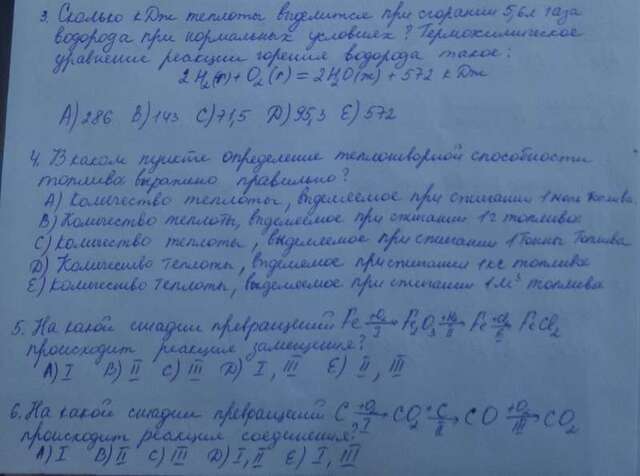 3. Сколько кДж теплоты выделится при сгорании 5,6л газа
водорода при нормальных условиях? Термохимическое
уравнение реакции горения водорода такое:
2H₂(г)+O₂(г)=2H₂O(ж)+572 кДж
А) 286 В) 143 С) 71,5 Д) 95,3 Е) 572
4. В каком пункте определение теплотворной способности
топлива выражено правильно?
А) Количество теплоты, выделяемое при сжигании 1 моль топлива.
В) Количество теплоты, выделяемое при сжигании 1г топлива
С) Количество теплоты, выделяемое при сжигании 1 Тонны Топлива
Д) Количество теплоты, выделяемое при сжигании 1кг топлива
Е) Количество теплоты, выделяемое при сжигании 1м³ топлива
5. На какой стадии превращений Fe +O₂→ I Fe₂O₃ +H₂→ II Fe +Cl₂→ FeCl₂
происходит реакция замещения?
А) I В) II С) III Д) I, III Е) II, III
6. На какой стадии превращений C +O₂→ I CO₂ +C→ II CO +O₂→ III CO₂
происходит реакция соединения?
А) I В) II С) III Д) I, II Е) I, III